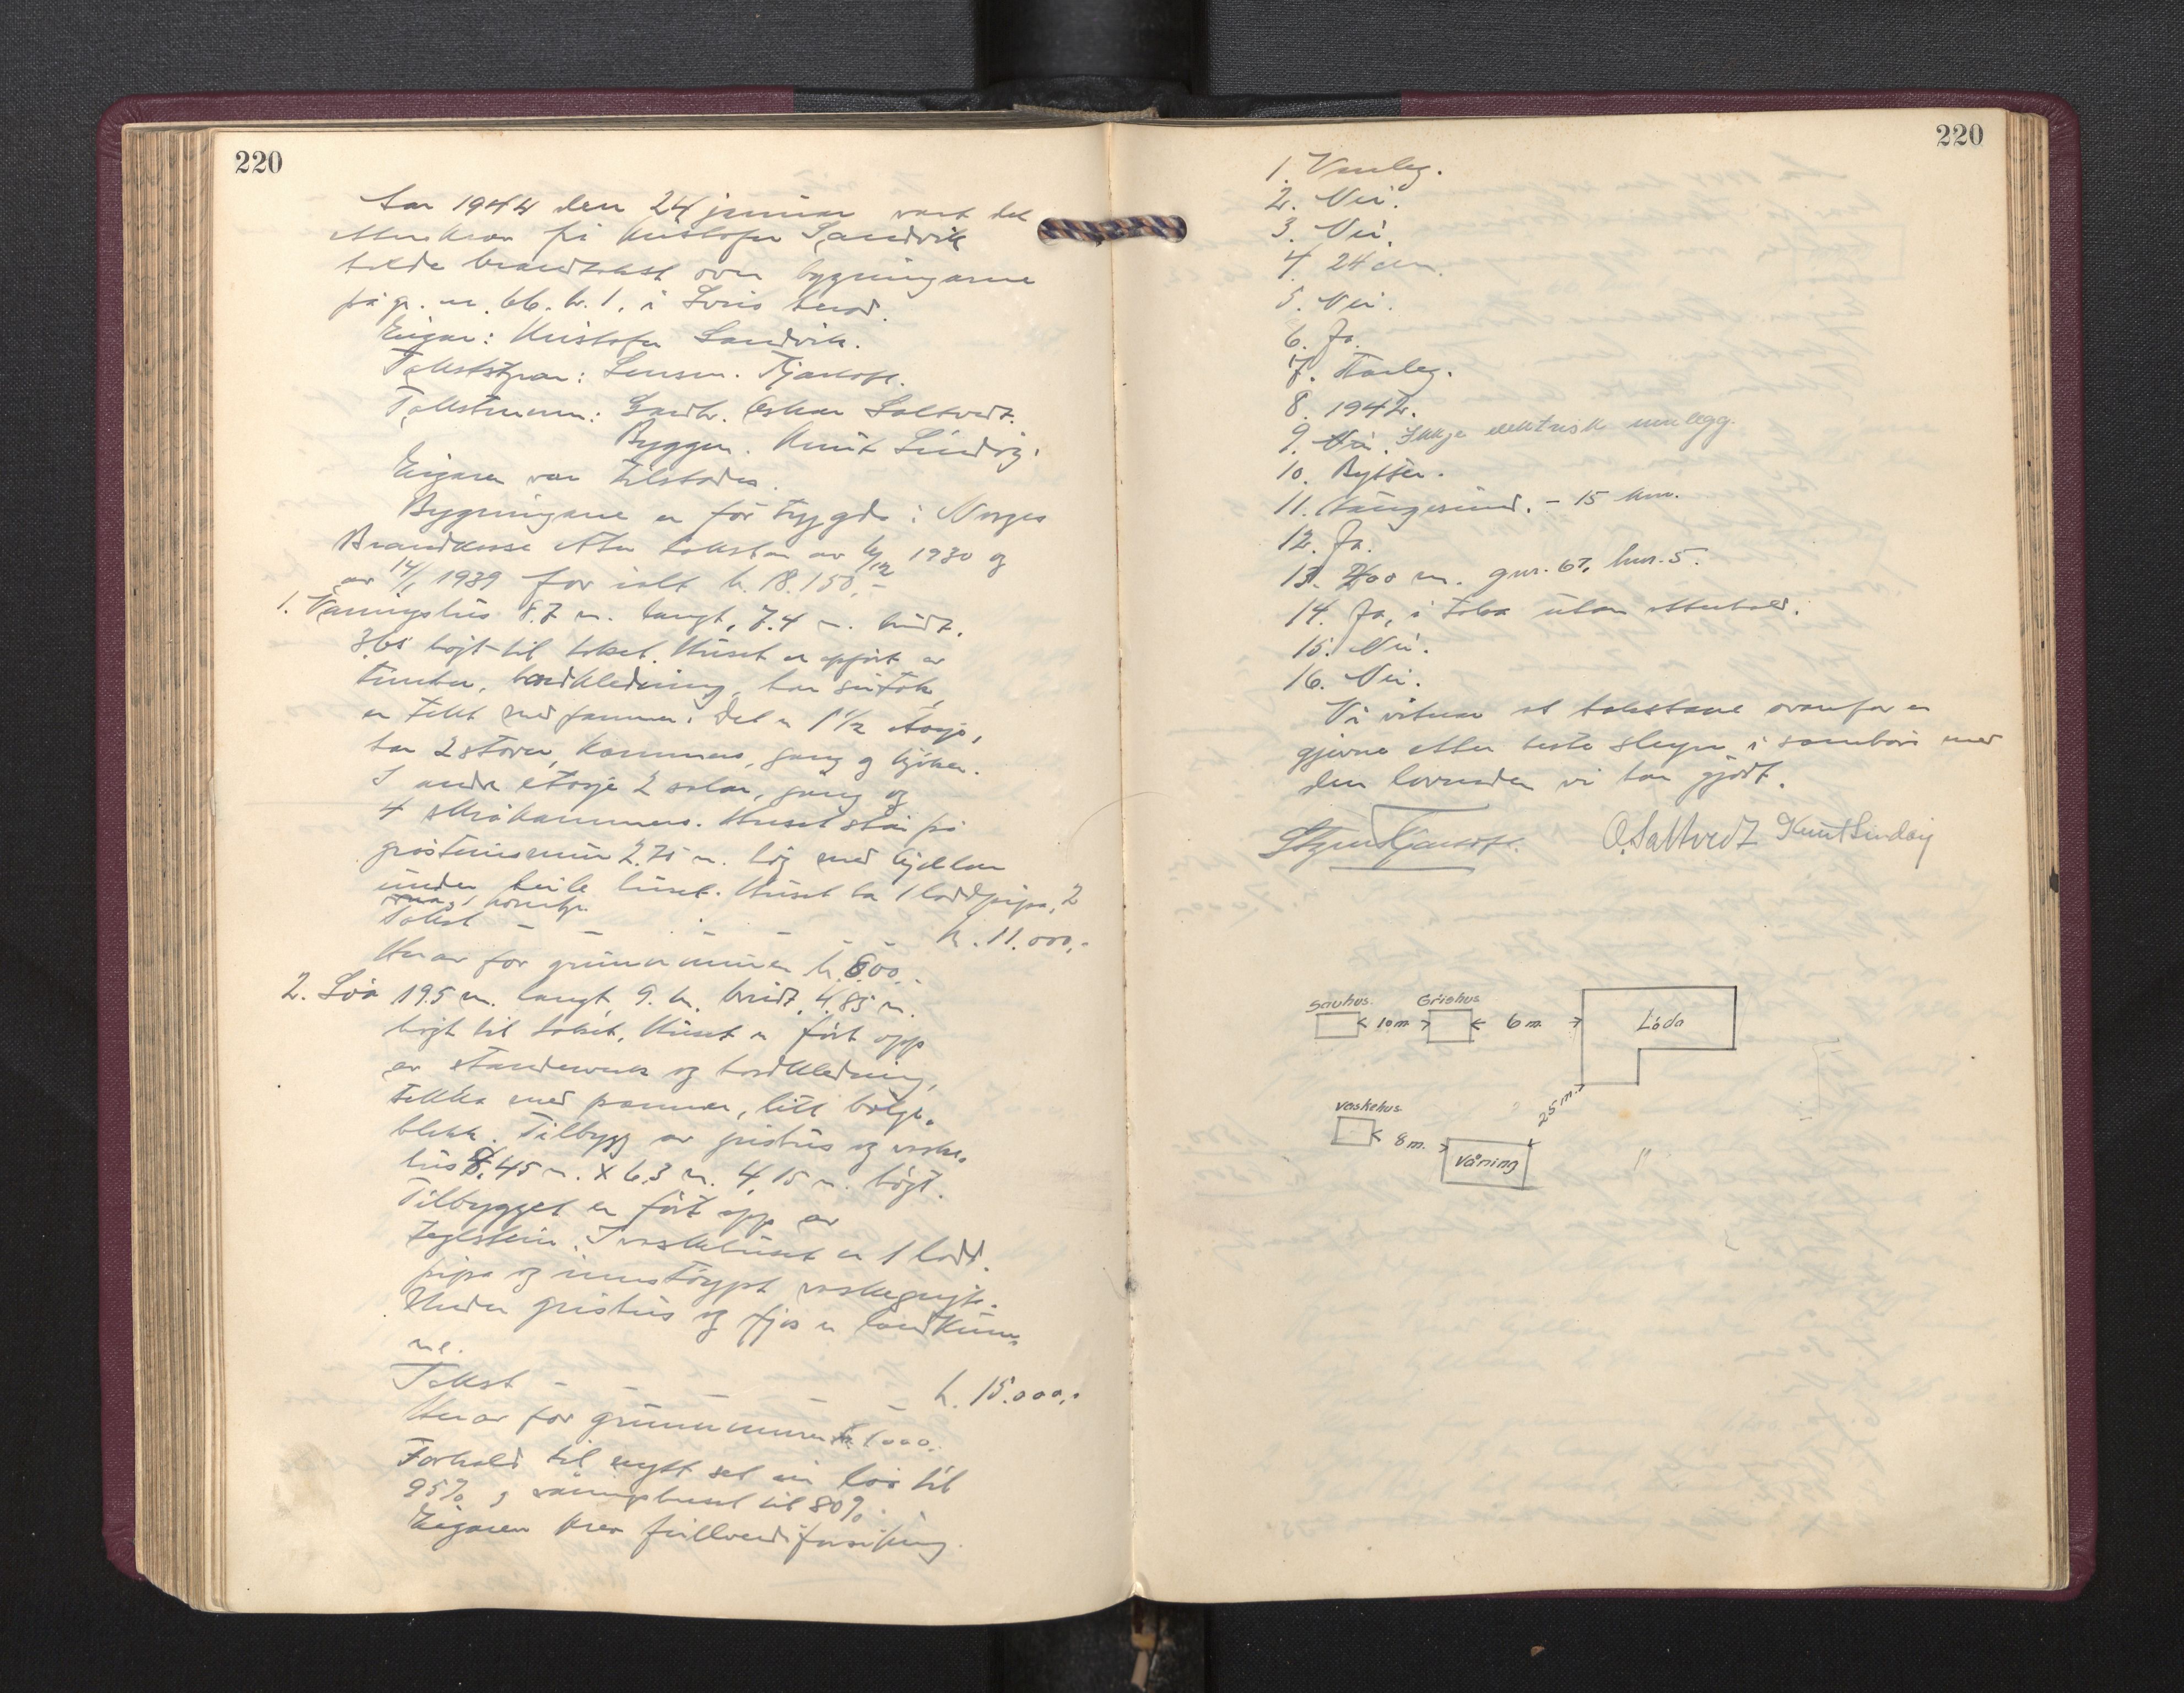 220
Aar 1944 den 24 januar vart det
etter krav frå Kristofer Sandvik
halde brandtakst over bygningarne
på g. nr. 66. b. 1. i Sveio herad.
Eigar: Kristofer Sandvik.
Takststyrar: Lensm. Tjarof.
Takstmenn: Gardbr. Oskar Saltvedt.
Byggm. Knut Lindøy.
Eigaren var tilstades.
Bygningane er før trygda i Norges
Brandkasse etter takstar av 1930 og
av 14/1 1939 for ialt kr. 18.150,-
1. Våningshus 8.7 m. langt, 7.4 m. bridt.
3.65 høgt til taket. Huset er opført av
timber, bordkledning, har sutak,
er tekt med panner. Det er 1 1/2 etasje,
har 2 stover, kammers, gang og kjøken.
I andre etasje 2 salar, gang og
4 skråkammers. Huset står på
gråsteinsmur 2.75 m. høg med kjellar
under heile huset. Huset ha 1 loddpipa, 2
omnar, 1 komfyr.
Takst - - - - - - kr. 11.000,-
Herav for grunnmuren kr. 800.-
2. Løa 19.5 m. langt, 9. m. bridt, 4.85 m.
høgt til taket. Huset er ført opp
av standerverk og bordkledning,
tekka med pannor, litt bølge-
blekk. Tilbygg av grishus og vaske-
hus 8.45 m. x 6.3 m. 4,15 m. høgt.
Tilbygget er ført opp av
teglstein. I vaskehuset er 1 lodd-
pipa og innstøypt vaskegryte.
Under grishus og fjøs er landkum-
me.
Takst - - - - - kr. 15.000,-
Herav for grunnmuren kr. 1000.
Forhold til nytt set ein løa til
95% og våningshuset til 80%.
Eigaren krev fullverdiforsikring.
220
1. Vanleg.
2. Nei.
3. Nei.
4. 24 cm.
5. Nei.
6. Ja.
7. Vanleg.
8. 1942.
9. Nei. Ikkje elektrisk innlegg.
10. Bytter.
11. Haugesund. - 15 km.
12. Ja.
13. 200 m. gnr. 67, bnr. 5.
14. Ja, i toba utan atterhald.
15. Nei.
16. Nei.
Vi vitnar at takstane ovanfor er
gjevne etter beste skyn i samhøve med
den lovnaden vi har gjort.
O. Saltvedt Knut Lindøy
Sauhus. Grishus
10 m 6 m. Löda
25 m.
vaskehus.
8 m. Våning